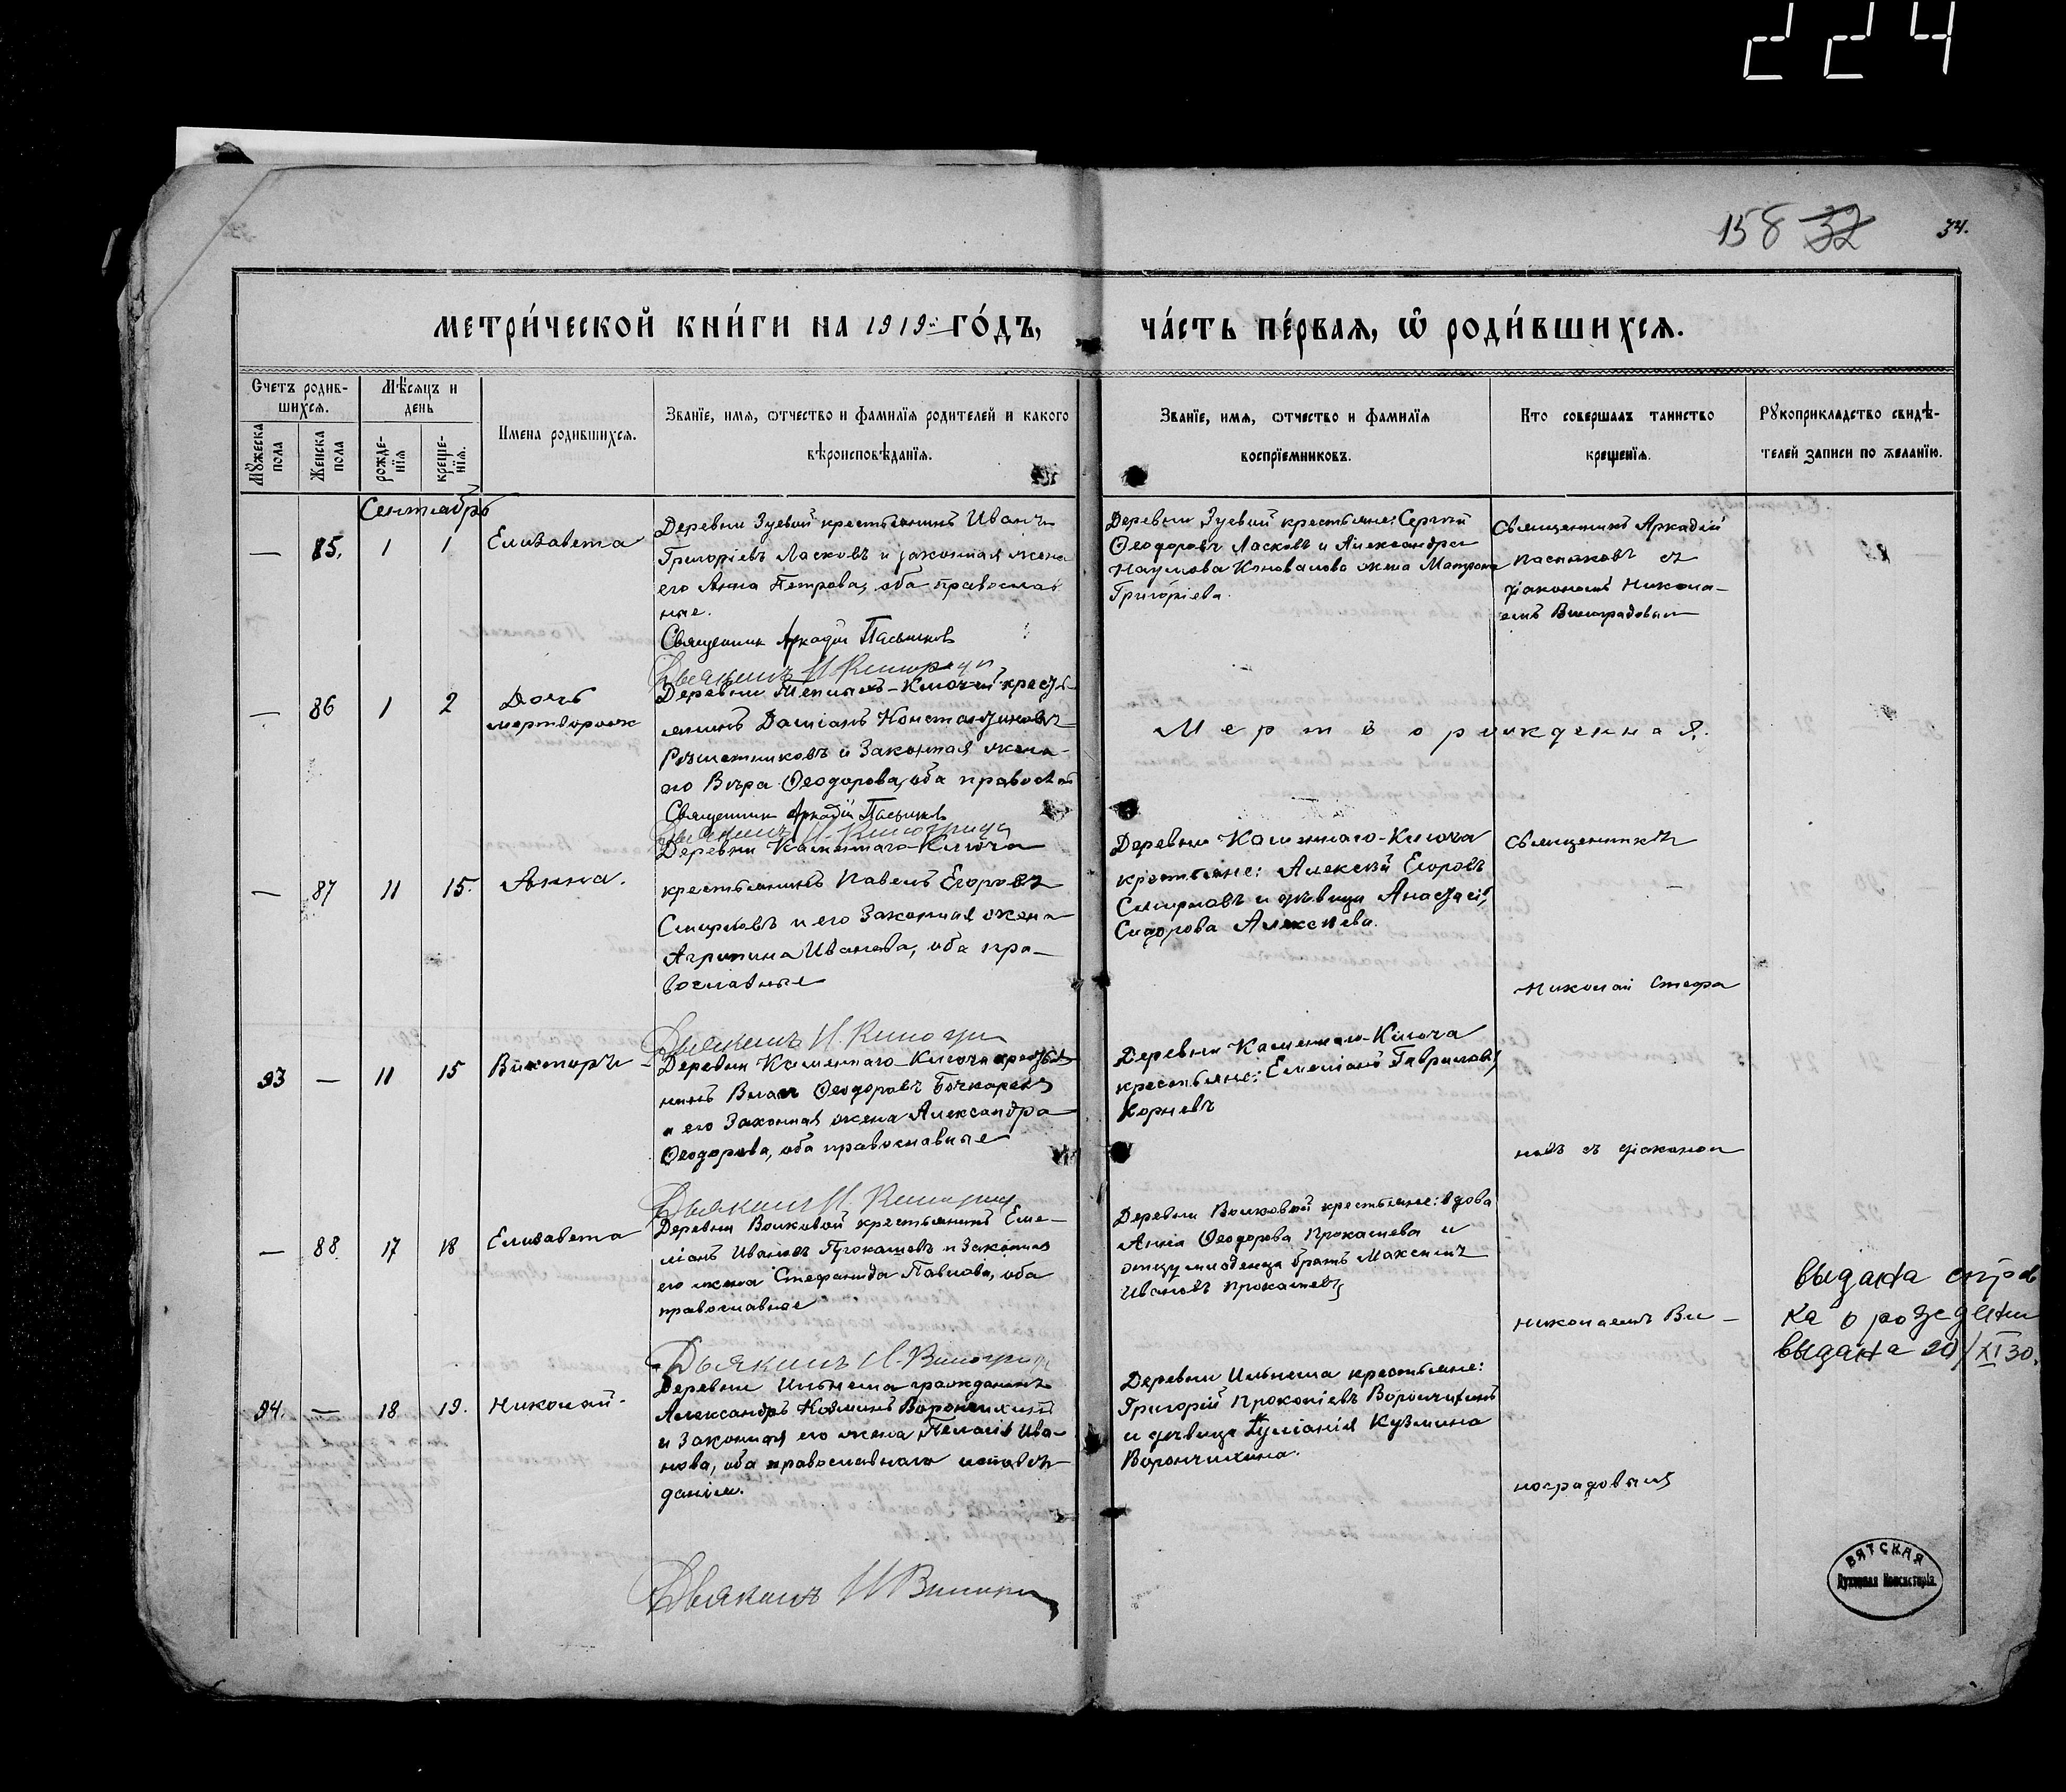 224
158 32
34.
МЕТРИ́ЧЕСКОЙ КНИ́ГИ НА 1919й ГО́ДЪ,
ЧА́СТЬ ПЕ́РВАЯ, Ѿ РОДИ́ВШИХСЯ.
Счетъ родив-
шихся.
Мѣсяцъ и
день
Мꙋжеска
пола
Женска
пола
рожде-
нїя
креще-
нїя.
Имена родившихся.
Званїе, имя, ѿтчество и фамилїя родителей и какого
вѣроисповѣданїя.
Званїе, имя, ѿтчество и фамилїя
воспрїемниковъ.
Кто совершалъ таинство
крещенїя.
Рꙋкоприкладство свидѣ-
телей записи по желанїю.
Сентябрь
— 85. 1 1 Елизавета
Деревни Зуевой крестьянинъ Иванъ
Григоріевъ Ласковъ и законная жена
его Анна Петрова, оба православ
ные.
Священник Аркадій Пасынков
Дьяконъ Н. Виноградов
Деревни Зуевой крестьяне: Сергій
Ѳеодоровъ Ласковъ и Александра
Наумова Коновалова жена Матрона
Григоріева.
Священникъ Аркадій
Пасынковъ съ
діакономъ Никола-
емъ Виноградовым
— 86 1 2 Дочь
мертворожд
Деревни Ключей кресть-
янинъ Даміанъ Константиновъ
Рѣшетниковъ и Законная жена
его Вѣра Ѳеодорова, оба правосл
Священник Аркадій Пасынков
Дьяконъ Н. Виноградов
Мертворожденная.
— 87 11 15. Анна.
Деревни Каменнаго-Ключа
крестьянинъ Павелъ Егоровъ
Смирновъ и его Законная жена
Агрипина Иванова, оба пра-
вославные
Дьяконъ Н. Виногра
Деревни Каменнаго-Ключа
крестьяне: Алексѣй Егоровъ
Смирновъ и дѣвица Анастасія
Сидорова Алексѣева.
Священникъ
Николай Стефа
93 — 11 15 Викторъ
Деревни Каменнаго-Ключа крестья
нинъ Власъ Ѳеодоровъ Бочкаревъ
и его Законная жена Александра
Ѳеодорова, оба православные
Дьяконъ Н. Виноград
Деревни Каменнаго-Ключа
крестьяне: Емеліанъ Гавриловъ
Корневъ
новъ съ діакономъ
— 88 17 18 Елизавета
Деревни Волковой крестьянинъ Еме-
ліанъ Ивановъ Прокашевъ и Законная
его жена Стефанида Павлова, оба
православные
Дьяконъ Н. Виноград
Деревни Волковой крестьяне: вдова
Анна Ѳеодорова Прокашева и
отцу младенца братъ Максимъ
Ивановъ Прокашевъ
Николаемъ Ви-
выдана справ
ка о рождении
выдана 20/XI 30.
94. — 18 19. Николай.
Деревни Ильнеша гражданинъ
Александръ Козминъ Ворончихинъ
и Законная его жена Пелагія Ива-
нова, оба православнаго исповѣ-
данія.
Дьяконъ Н Виногр
Деревни Ильнеша крестьяне:
Григорій Прокопіевъ Ворончихинъ
и дѣвица Іуліанія Кузмина
Ворончихина.
ноградовымъ
ВЯТСКАЯ
Духовная Консисторія